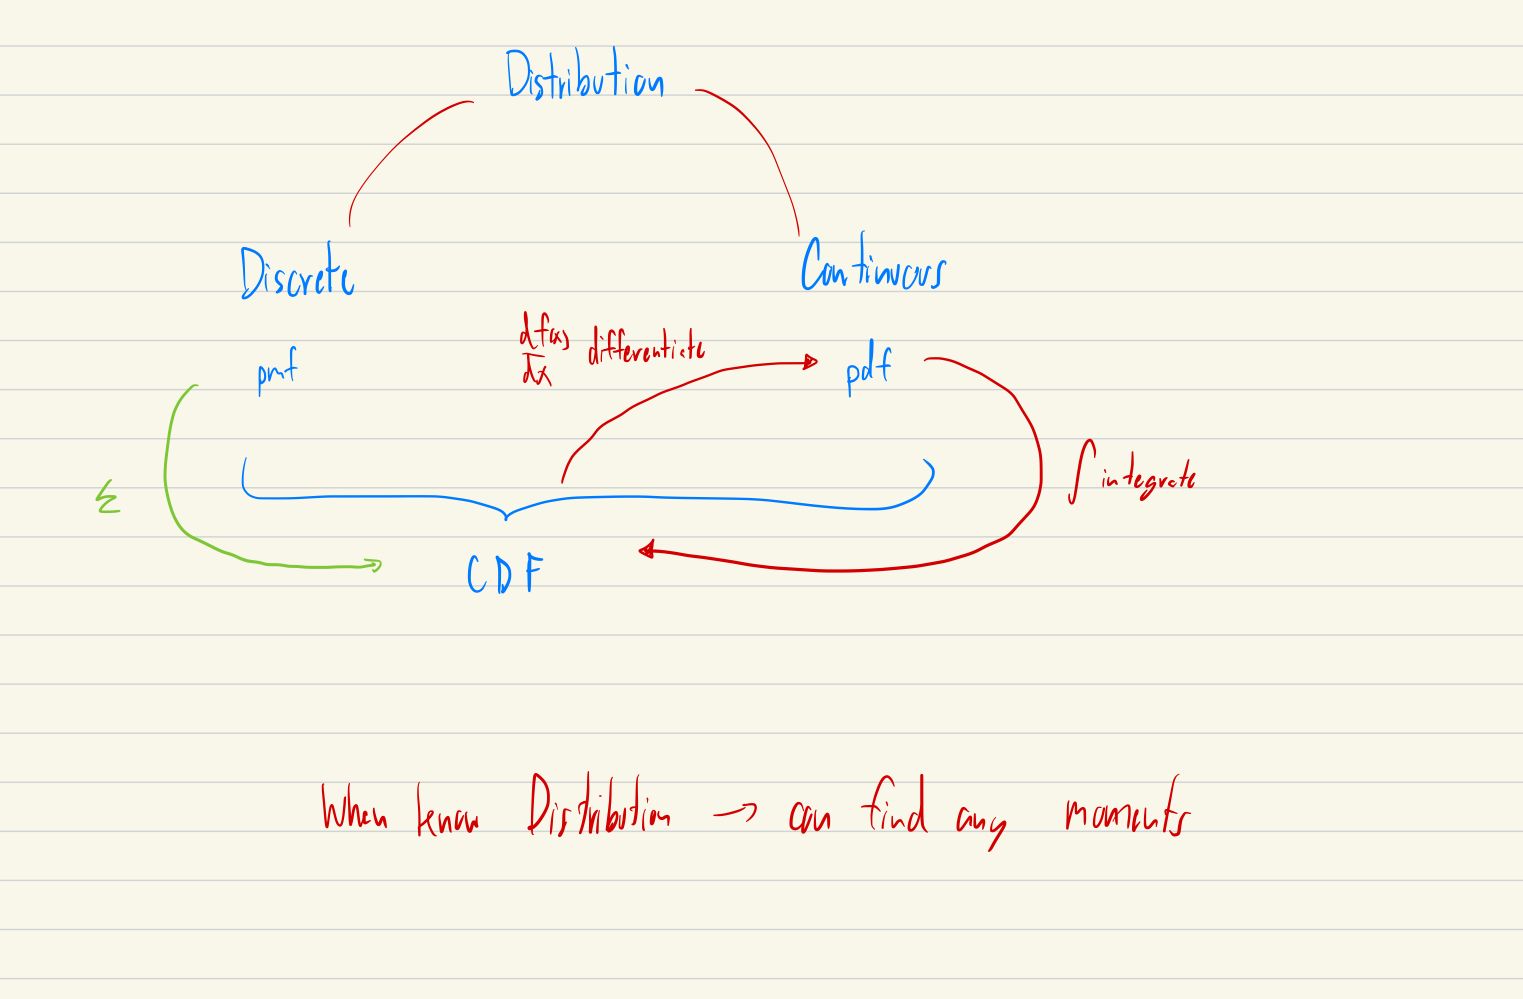 Distribution
Discrete
Continuous
df(x)
dx
differentiate
pmf
pdf
∫ integrate
Σ
CDF
When know Distribution → can find any moments